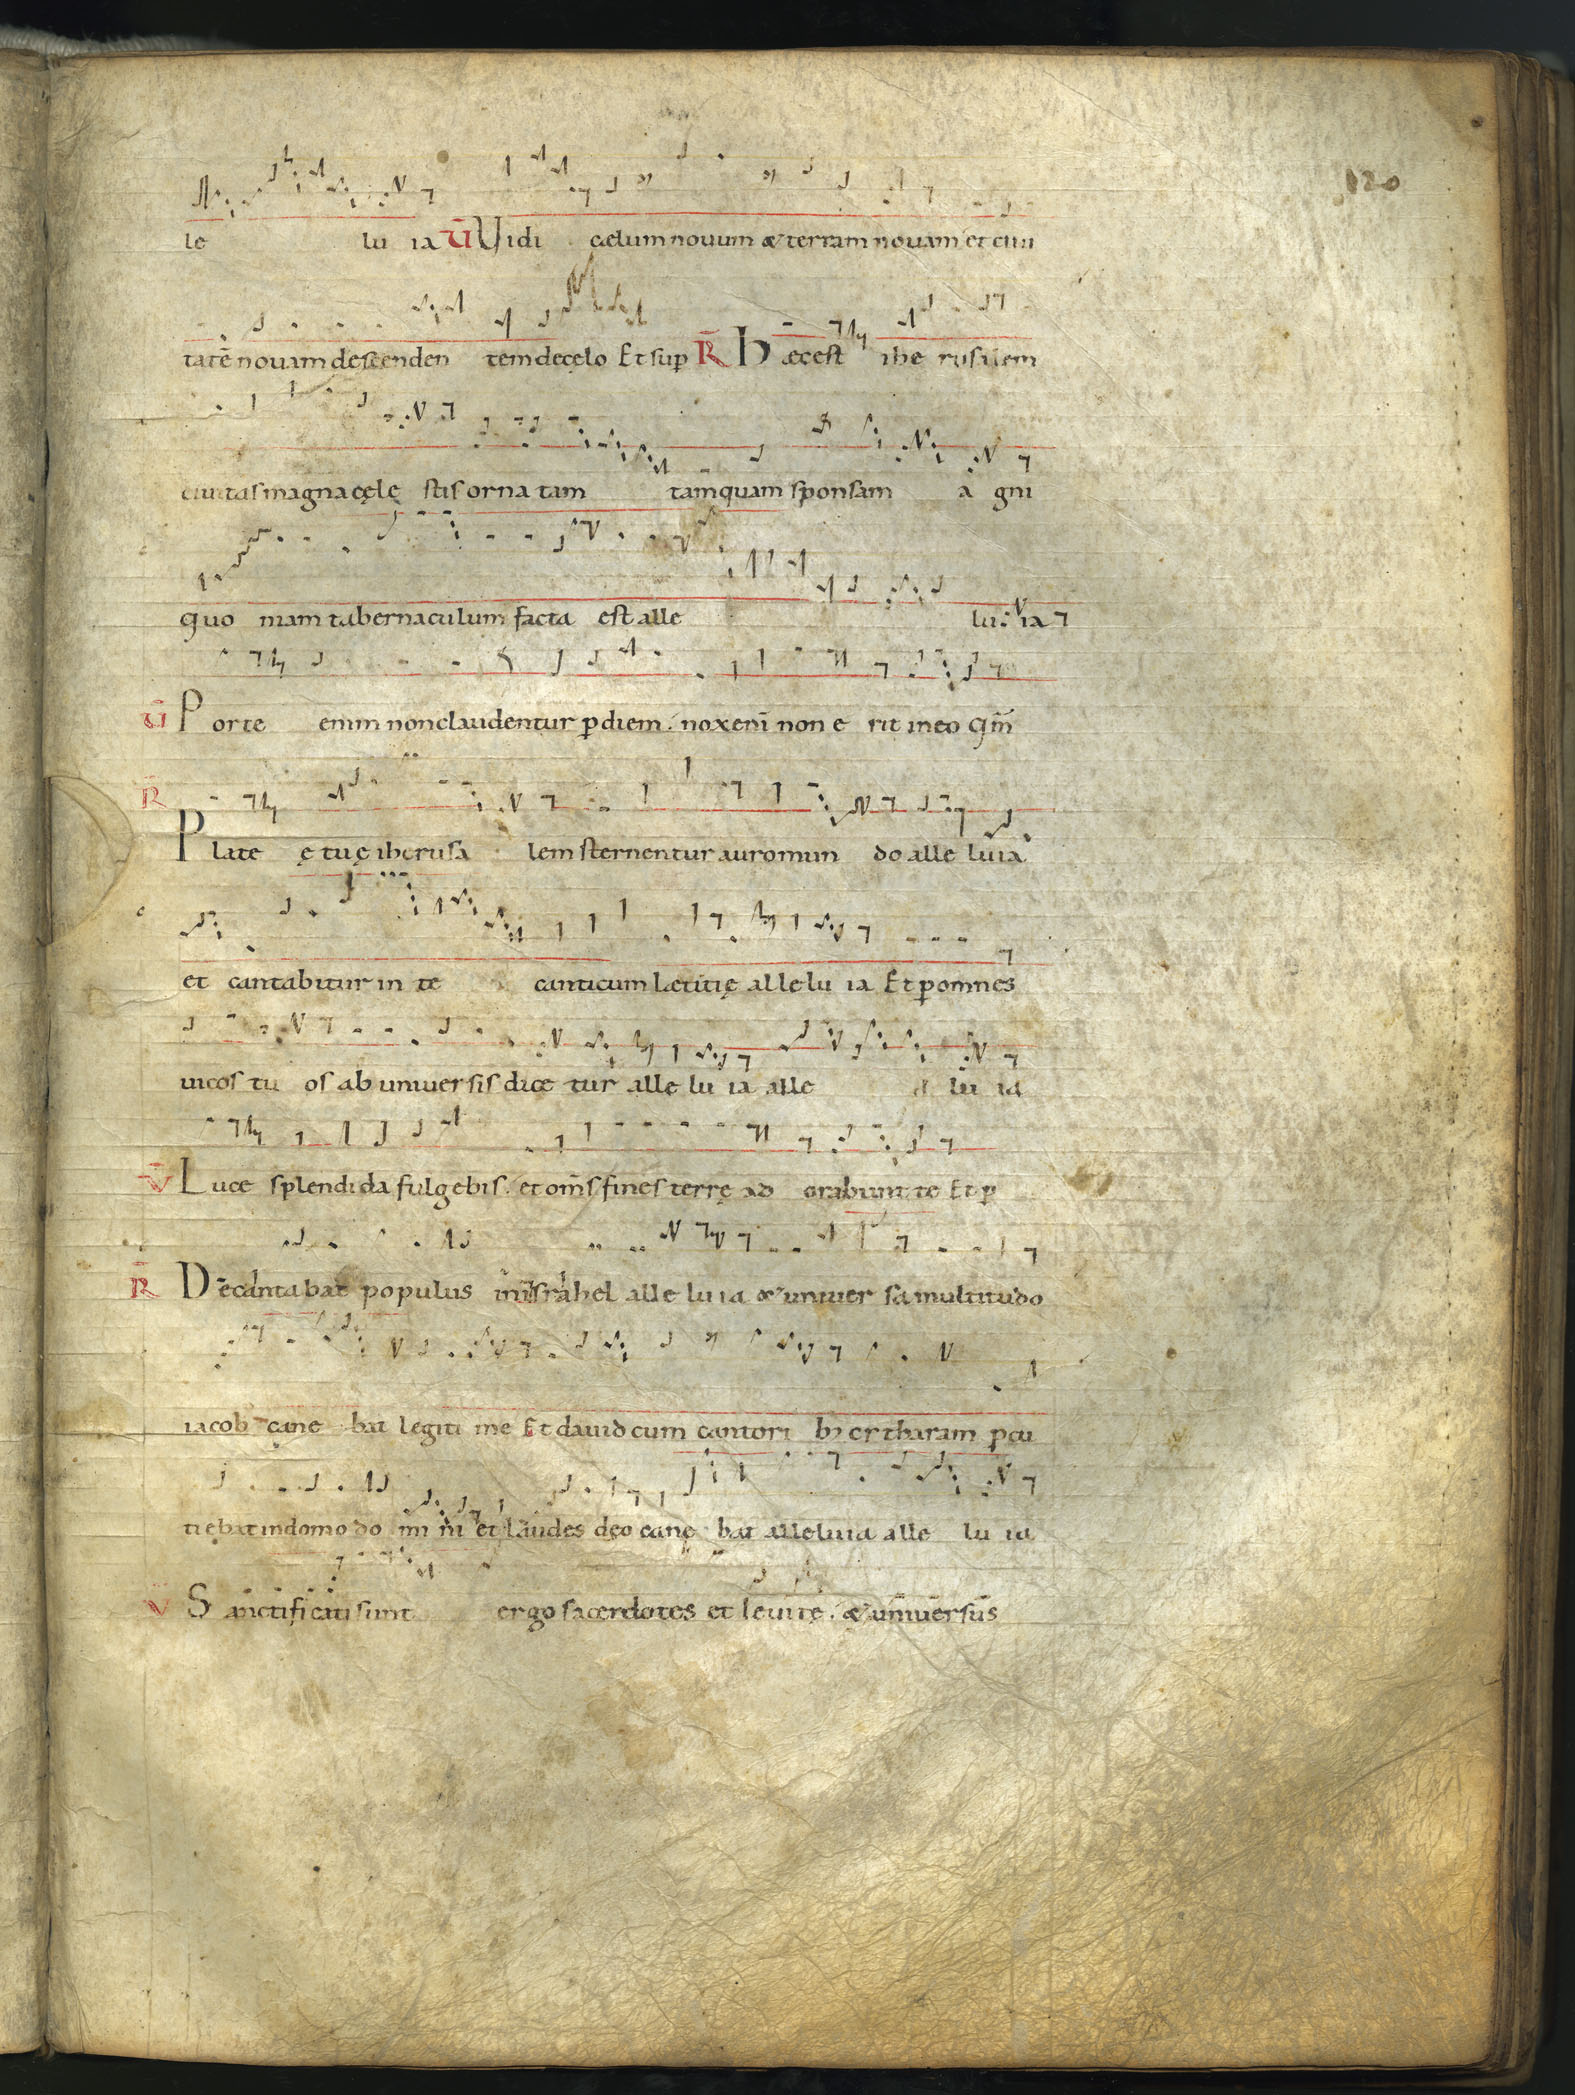 120
le lu ia V̄ Vidi cælum nouum & terram nouam et ciui
tatē nouam descenden tem de cęlo Et sup R̄ Hæc est ihe rusalem
ciuitas magna cęlę stis orna tam tāmquam sponsam a gni
quo niam tabernaculum facta est alle lu ia
V̄ Porte enim non claudentur p diem. nox enī non e rit in eo Qm̄
R̄
Plate ę tuę iherusa lem sternentur auro mun do alle luia
et cantabitur in te canticum lætitię allelu ia Et p omnes
uicos tu os ab uniuersis dice tur allę lu ia alle lu ia
V̄ Luce splendida fulgebis. et om̄s fines terrę ad orabunt te Et p
R̄ Decantabat populus in israhel alle luia & uniuer sa multitudo
iacob cane bat legiti me Et dauid cum cantori bꝫ citharam pcu
tiebat in domo do mi ni et laudes deo canę bat alleluia alle lu ia
V̄ Sanctificati sunt ergo sacerdotes et leuitę. & uniuersus